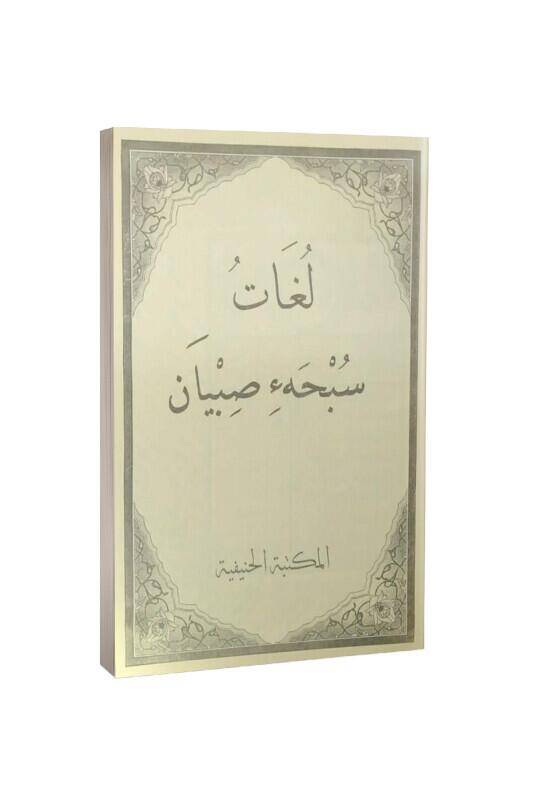 لُغَاتُ
سُبْحَهءِ صِبْيَانَ
المكتبة الحنيفية